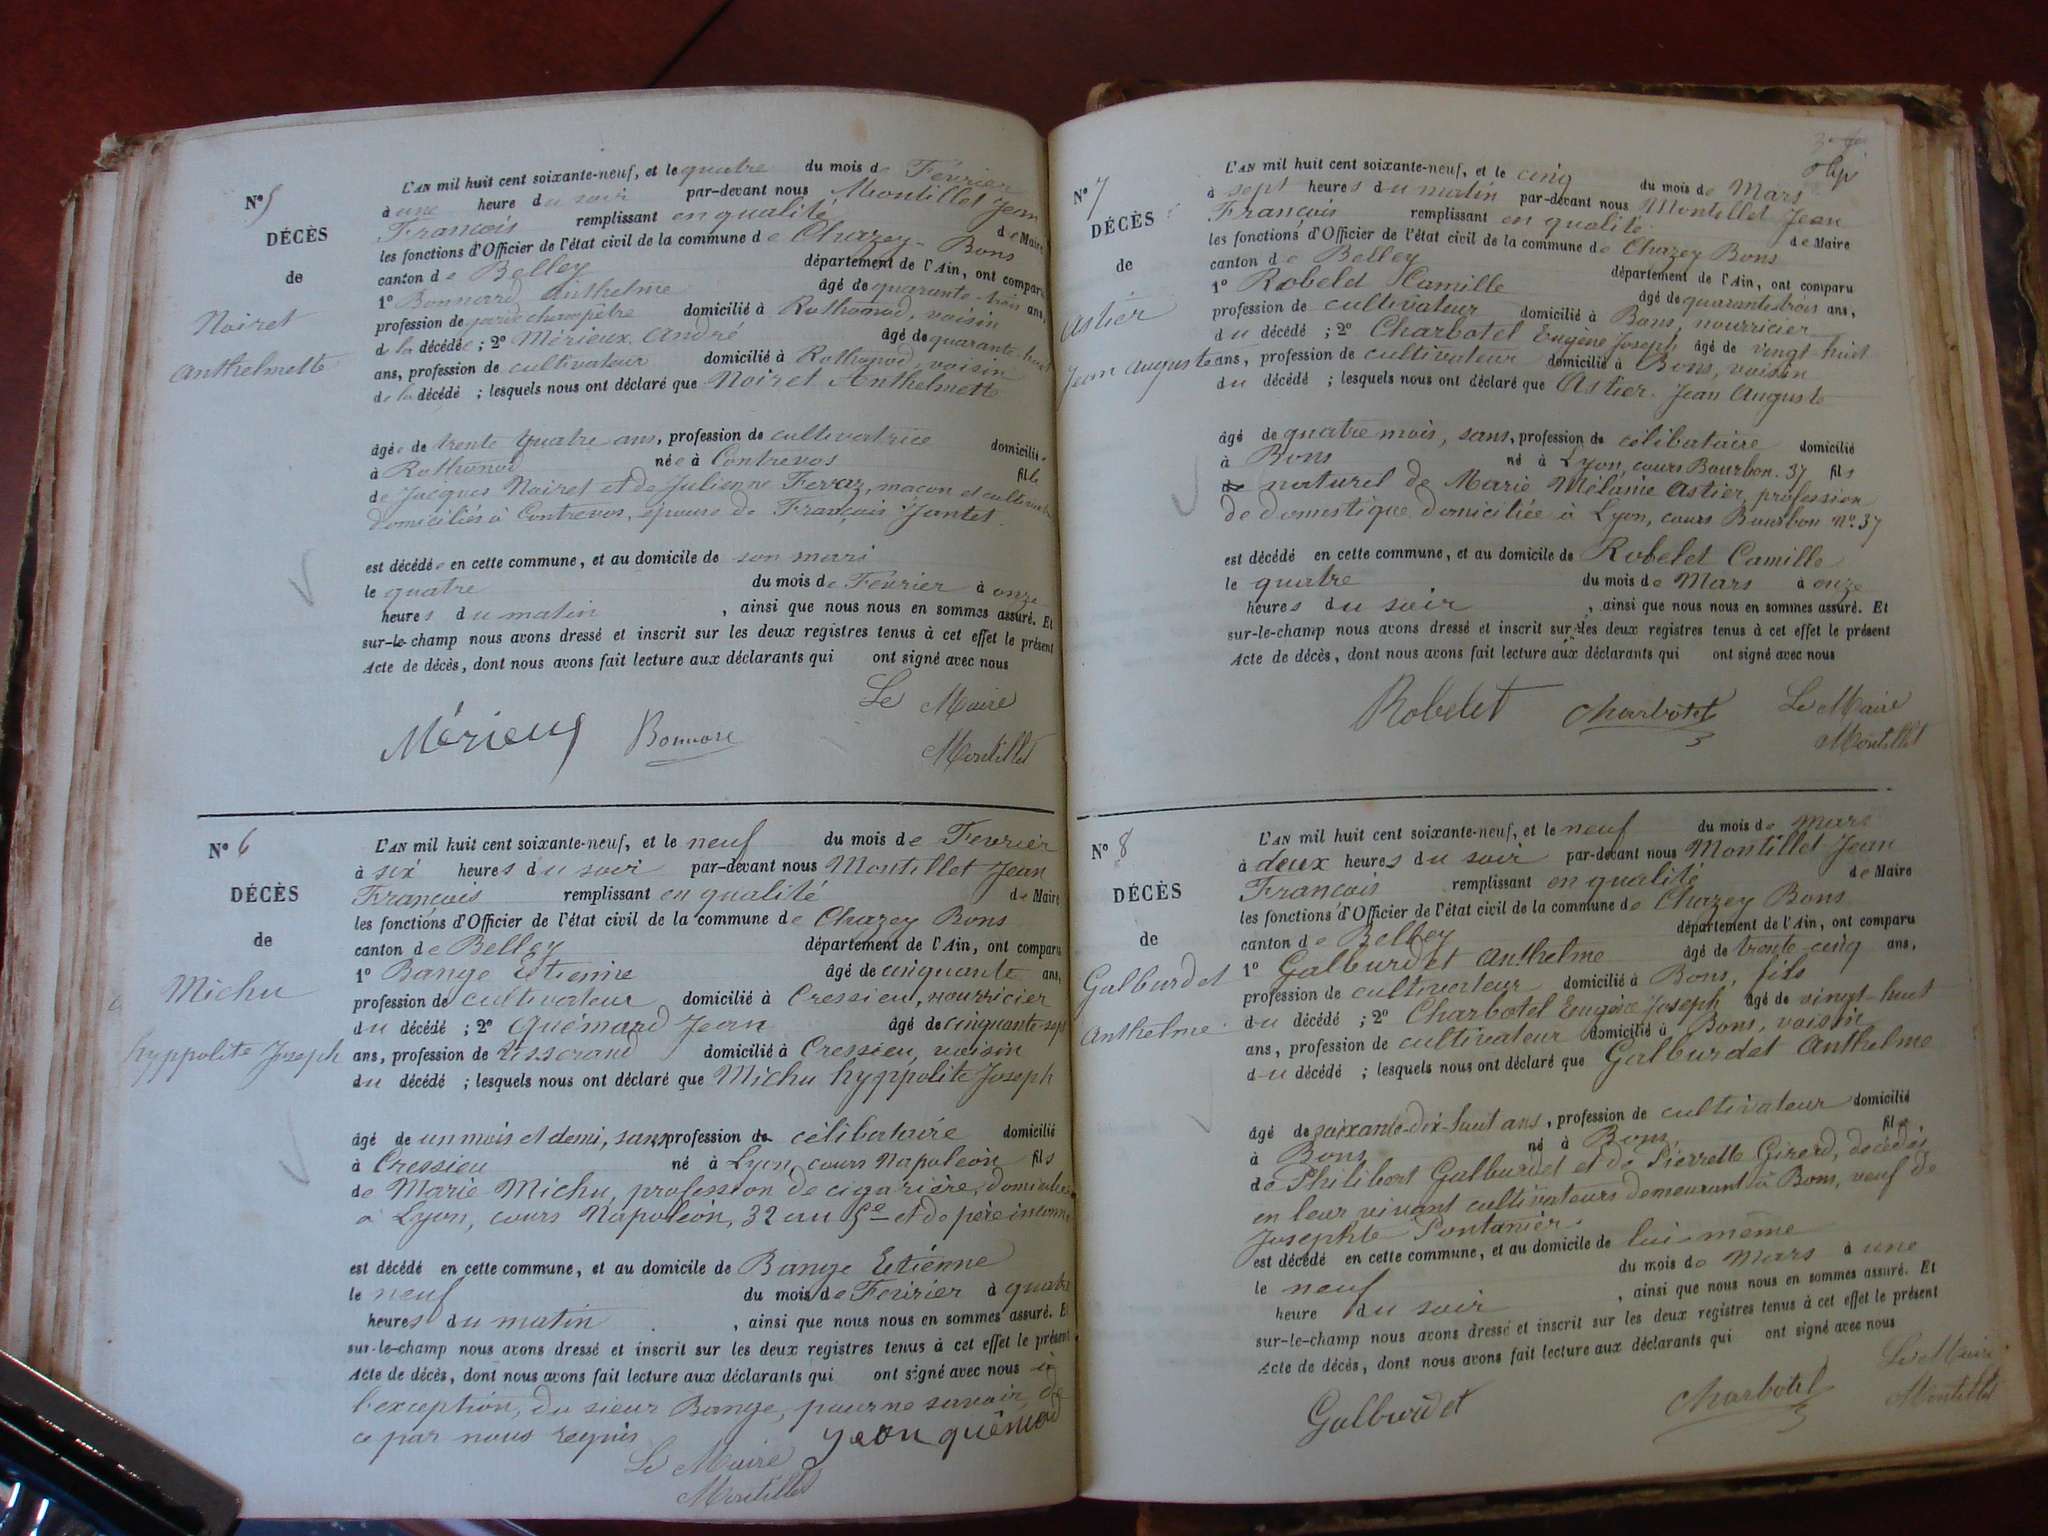 N° 5
DÉCÈS
de
Noiret
Anthelmette
L'AN mil huit cent soixante-neuf, et le quatre du mois de Février
à une heure du soir par-devant nous Montillet Jean
François remplissant en qualité de Maire
les fonctions d'Officier de l'état civil de la commune de Chazey-Bons
canton de Belley département de l'Ain, ont comparu
1° Bonnard Anthelme âgé de quarante-trois ans,
profession de garde champêtre domicilié à Rothonod, voisin
de la décédée ; 2° Mérieux André âgé de quarante-huit
ans, profession de cultivateur domicilié à Rothonod, voisin
de la décédé ; lesquels nous ont déclaré que Noiret Anthelmette
âgée de trente quatre ans, profession de cultivatrice domiciliée
à Rothonod née à Contrevos fille
de Jacques Noiret et de Julienne Ferraz, maçon et cultivatrice
domiciliés à Contrevos, épouse de François Jantet.
est décédée en cette commune, et au domicile de son mari
le quatre du mois de Février à onze
heures du matin , ainsi que nous nous en sommes assuré. Et
sur-le-champ nous avons dressé et inscrit sur les deux registres tenus à cet effet le présent
Acte de décès, dont nous avons fait lecture aux déclarants qui ont signé avec nous
Le Maire
Mérieux Bonnard Montillet
N° 6
DÉCÈS
de
Michu
hyppolite Joseph
L'AN mil huit cent soixante-neuf, et le neuf du mois de Fevrier
à six heures du soir par-devant nous Montillet Jean
François remplissant en qualité de Maire
les fonctions d'Officier de l'état civil de la commune de Chazey Bons
canton de Belley département de l'Ain, ont comparu
1° Bange Etienne âgé de cinquante ans,
profession de cultivateur domicilié à Cressieu, nourricier
du décédé ; 2° Quémard Jean âgé de cinquante sept
ans, profession de tisserand domicilié à Cressieu, voisin
du décédé ; lesquels nous ont déclaré que Michu hyppolite Joseph
âgé de un mois et demi, sans profession de célibataire domicilié
à Cressieu né à Lyon cours Napoléon fils
de Marie Michu, profession de cigarière, domiciliée
à Lyon, cours Napoléon, 32 au 5e et de père inconnu
est décédé en cette commune, et au domicile de Bange Etienne
le neuf du mois de Fevrier à quatre
heures du matin , ainsi que nous nous en sommes assuré. Et
sur-le-champ nous avons dressé et inscrit sur les deux registres tenus à cet effet le présent
Acte de décès, dont nous avons fait lecture aux déclarants qui ont signé avec nous à
l'exception, du sieur Bange, pour ne savoir, de
ce par nous requis
Le Maire jean quémard
Montillet
N° 7
DÉCÈS
de
Astier
Jean Auguste
L'AN mil huit cent soixante-neuf, et le cinq du mois de Mars
à sept heures du matin par-devant nous Montillet Jean
François remplissant en qualité de Maire
les fonctions d'Officier de l'état civil de la commune de Chazey Bons
canton de Belley département de l'Ain, ont comparu
1° Robeld Camille âgé de quarante trois ans,
profession de cultivateur domicilié à Bons, nourricier
du décédé ; 2° Charbotel Eugène Joseph âgé de vingt-huit
ans, profession de cultivateur domicilié à Bons, voisin
du décédé ; lesquels nous ont déclaré que Astier Jean Auguste
âgé de quatre mois, sans, profession de célibataire domicilié
à Bons né à Lyon, cours Bourbon. 37 fils
naturel de Marie Mélanie Astier, profession
de domestique domiciliée à Lyon, cours Bourbon n°. 37
est décédé en cette commune, et au domicile de Robelet Camille
le quatre du mois de Mars à onze
heures du soir , ainsi que nous nous en sommes assuré. Et
sur-le-champ nous avons dressé et inscrit sur les deux registres tenus à cet effet le présent
Acte de décès, dont nous avons fait lecture aux déclarants qui ont signé avec nous
Robelet Charbotel Le Maire
Montillet
N° 8
DÉCÈS
de
Galburdet
Anthelme
L'AN mil huit cent soixante-neuf, et le neuf du mois de Mars
à deux heures du soir par-devant nous Montillet Jean
François remplissant en qualité de Maire
les fonctions d'Officier de l'état civil de la commune de Chazey Bons
canton de Belley département de l'Ain, ont comparu
1° Galburdet Anthelme âgé de trente-cinq ans,
profession de cultivateur domicilié à Bons, fils
du décédé ; 2° Charbotel Eugène Joseph âgé de vingt-huit
ans, profession de cultivateur domicilié à Bons, voisin
du décédé ; lesquels nous ont déclaré que Galburdet Anthelme
âgé de soixante-dix-huit ans, profession de cultivateur domicilié
à Bons né à Bons fils
de Philibert Galburdet et de Pierrette Girerd, décédés
en leur vivant cultivateurs demeurant à Bons, veuf de
Josephte Pontanier.
est décédé en cette commune, et au domicile de lui-même
le neuf du mois de Mars à une
heure du soir , ainsi que nous nous en sommes assuré. Et
sur-le-champ nous avons dressé et inscrit sur les deux registres tenus à cet effet le présent
Acte de décès, dont nous avons fait lecture aux déclarants qui ont signé avec nous
Le Maire
Galburdet Charbotel Montillet